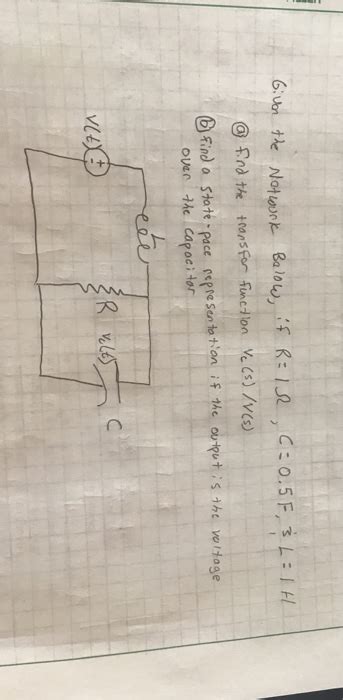 Given the Network Below, if R = 1Ω, C = 0.5F, & L = 1H
ⓐ find the transfer function Vc(s)/V(s)
ⓑ Find a state-pace representation if the output is the voltage
over the capacitor
V(t) ± R Vc(t) C